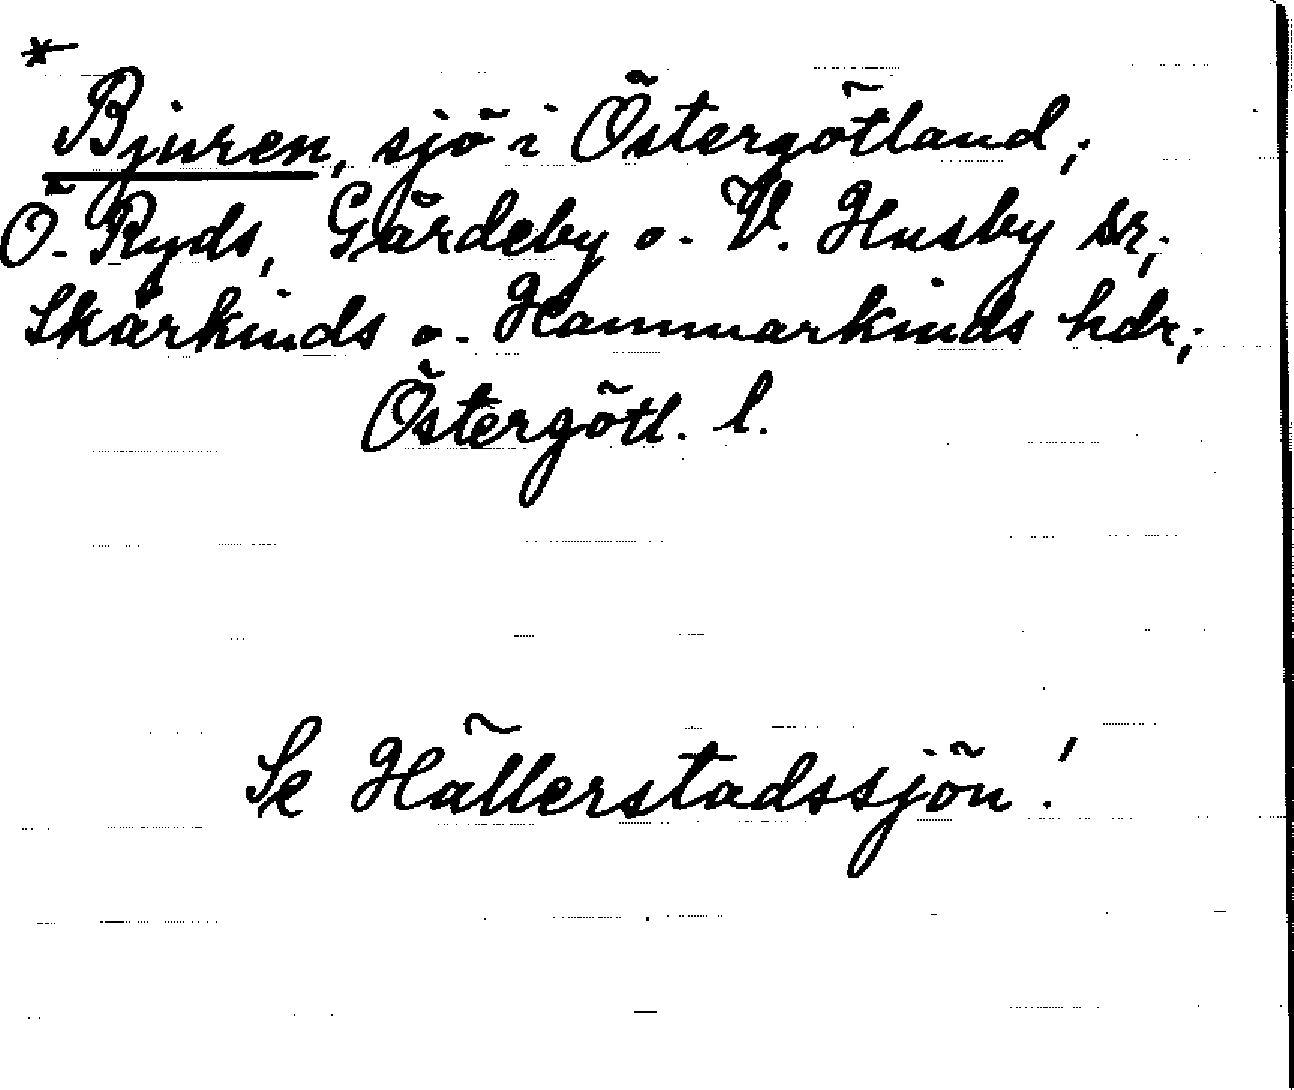 *
Bjuren, sjö i Östergötland;
Ö. Ryds, Gärdeby o. V. Husby sr;
Skärkinds o. Hammarkinds hdr;
Östergötl. l.
Se Hällerstadssjön!